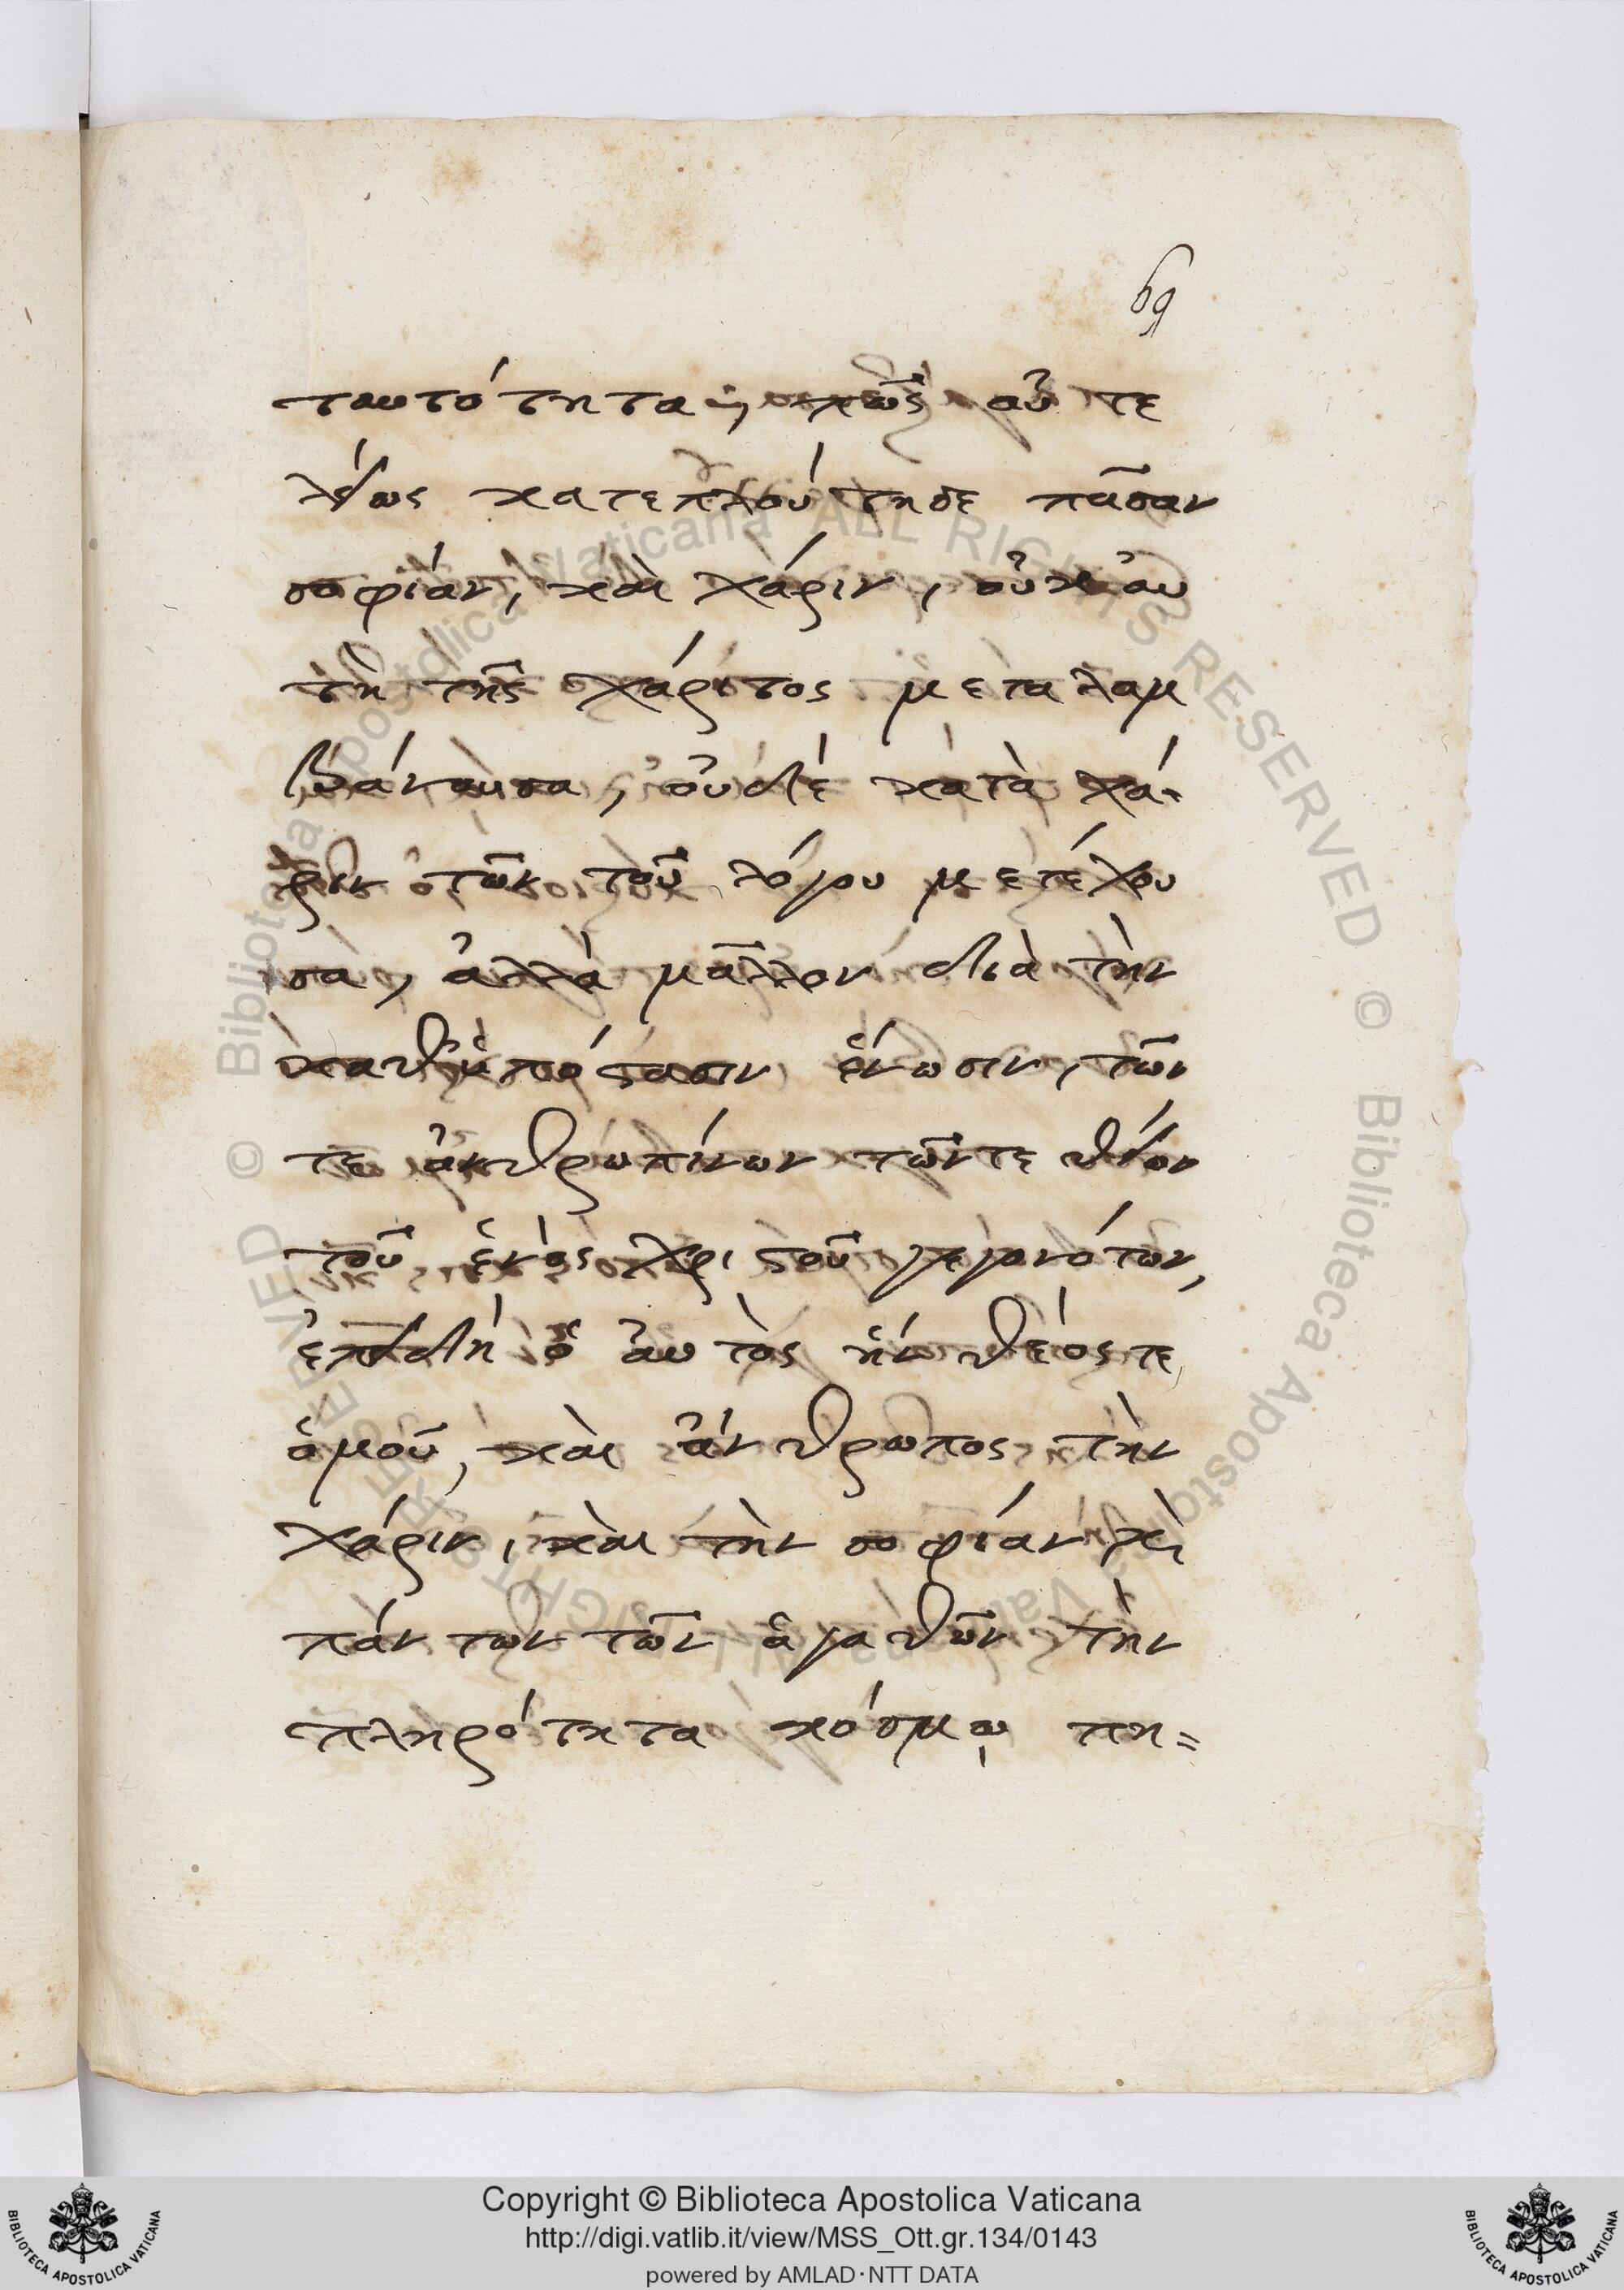 69
ταυτότητα, πῶς οὐ τε
λείως κατεπλούτησε πᾶσαν
σοφίαν, καὶ χάριν, οὐκ αυ
τὴ τῆς χάριτος μεταλαμ
βάνουσα, οὐδὲ κατὰ χά-
ριν τῶν τοῦ λόγου μετέχου
σα, ἀλλὰ μᾶλλον διὰ τὴν
καθ' ὑπόστασιν ἕνωσιν, τῶν
τε ἀνθρωπίνων τῶν τε θείων
τοῦ ἑνὸς χριστοῦ γεγονότων,
ἐπειδὴ ὁ αὐτὸς ἦν θεός τε
ὁμοῦ, καὶ ἄνθρωπος τὴν
χάριν, καὶ τὴν σοφίαν κὶ
πάντων τῶν ἀγαθῶν τὴν
πληρότητα κόσμῳ πη=
© Biblioteca Apostolica Vaticana ALL RIGHTS RESERVED © Biblioteca Apostolica Vaticana ALL RIGHTS RESERVED
BIBLIOTECA APOSTOLICA VATICANA
Copyright © Biblioteca Apostolica Vaticana
http://digi.vatlib.it/view/MSS_Ott.gr.134/0143
powered by AMLAD·NTT DATA
BIBLIOTECA APOSTOLICA VATICANA